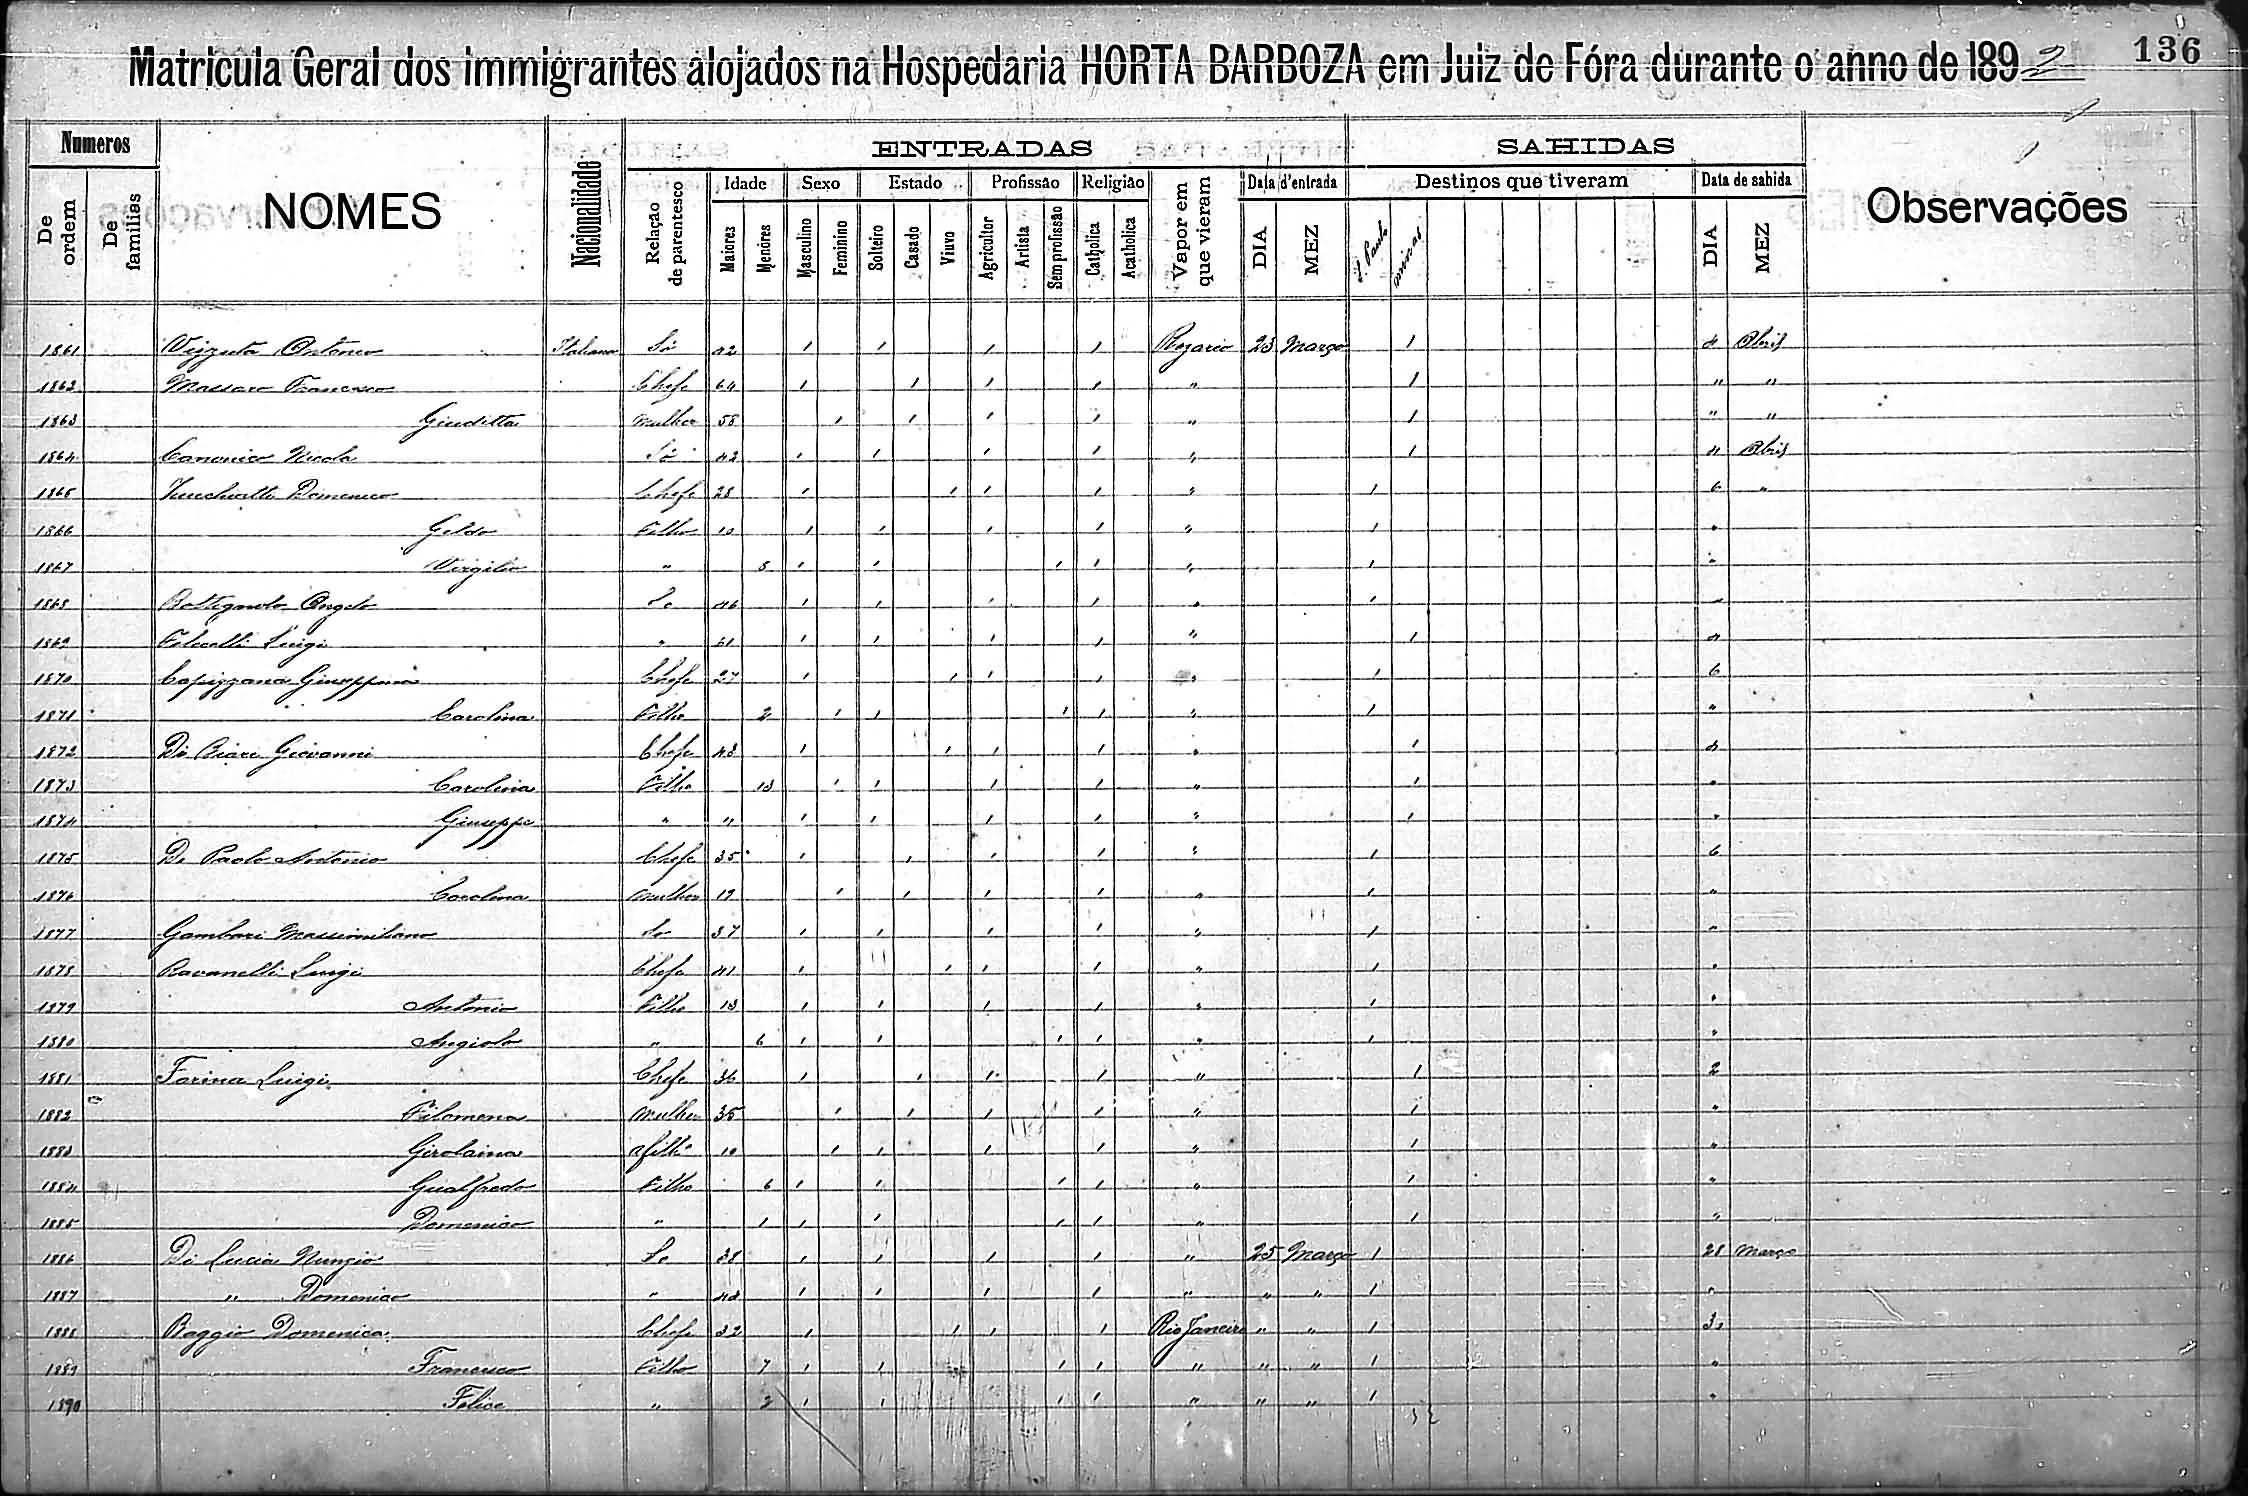 Matricula Geral dos immigrantes alojados na Hospedaria HORTA BARBOZA em Juiz de Fóra durante o anno de 1892 136
Numeros ENTRADAS SAHIDAS
De ordem De familias NOMES Nacionalidade Relação de parentesco Idade Sexo Estado Profissão Religião Vapor em que vieram Data d'entrada Destinos que tiveram Data de sahida Observações
Maiores Menóres Masculino Feminino Solteiro Casado Viuvo Agricultor Artista Sem profissão Catholica Acatholica DIA MEZ S. Paulo minas DIA MEZ
1861 Antonio Italiana Só 42 1 1 1 1 Rozario 23 Março 1 4 Abril
1862 Massaro Francesco Chefe 64 1 1 1 1 " 1 " "
1863 Giuditta mulher 58 1 1 1 1 " 1 " "
1864 Canonico Nicola Só 42 1 1 1 1 " 1 4 Abril
1865 Domenico Chefe 28 1 1 1 1 " 1 6 "
1866 Geldo Filho 10 1 1 1 1 " 1 "
1867 Virgilio " 5 1 1 1 1 " 1 "
1868 Angelo So 46 1 1 1 1 " 1 "
1869 Luigi " 61 1 1 1 1 " 1 4
1870 Capizzana Giuseppina Chefe 27 1 1 1 1 " 1 6
1871 Carolina Filha 2 1 1 1 1 " 1 "
1872 Di Giovanni Chefe 48 1 1 1 1 " 1 4
1873 Carolina Filha 13 1 1 1 1 " 1 "
1874 Giuseppe " 11 1 1 1 1 " 1 "
1875 De Paolo Antonio Chefe 35 1 1 1 1 " 1 6
1876 Carolina mulher 19 1 1 1 1 " 1 "
1877 Gambari Massimiliano So 37 1 1 1 1 " 1 "
1878 Ravanelli Luigi Chefe 41 1 1 1 1 " 1 "
1879 Antonio Filho 13 1 1 1 1 " 1 "
1880 Angiolo " 6 1 1 1 1 " 1 "
1881 Farina Luigi Chefe 36 1 1 1 1 " 1 2
1882 Filomena mulher 35 1 1 1 1 " 1 "
1883 Girolaina 10 1 1 1 1 " 1 "
1884 Gualfredo Filho 6 1 1 1 1 " 1 "
1885 Domenico " 1 1 1 1 1 " 1 "
1886 Di Lucia Nunzio So 38 1 1 1 1 " 25 Março 1 28 Março
1887 " Domenico " 43 1 1 1 1 " " " 1 "
1888 Baggio Domenica Chefe 32 1 1 1 1 Rio Janeiro " " 1 31
1889 Francesco Filho 7 1 1 1 1 " " " 1 "
1890 Felice " 2 1 1 1 1 " " " 1 "